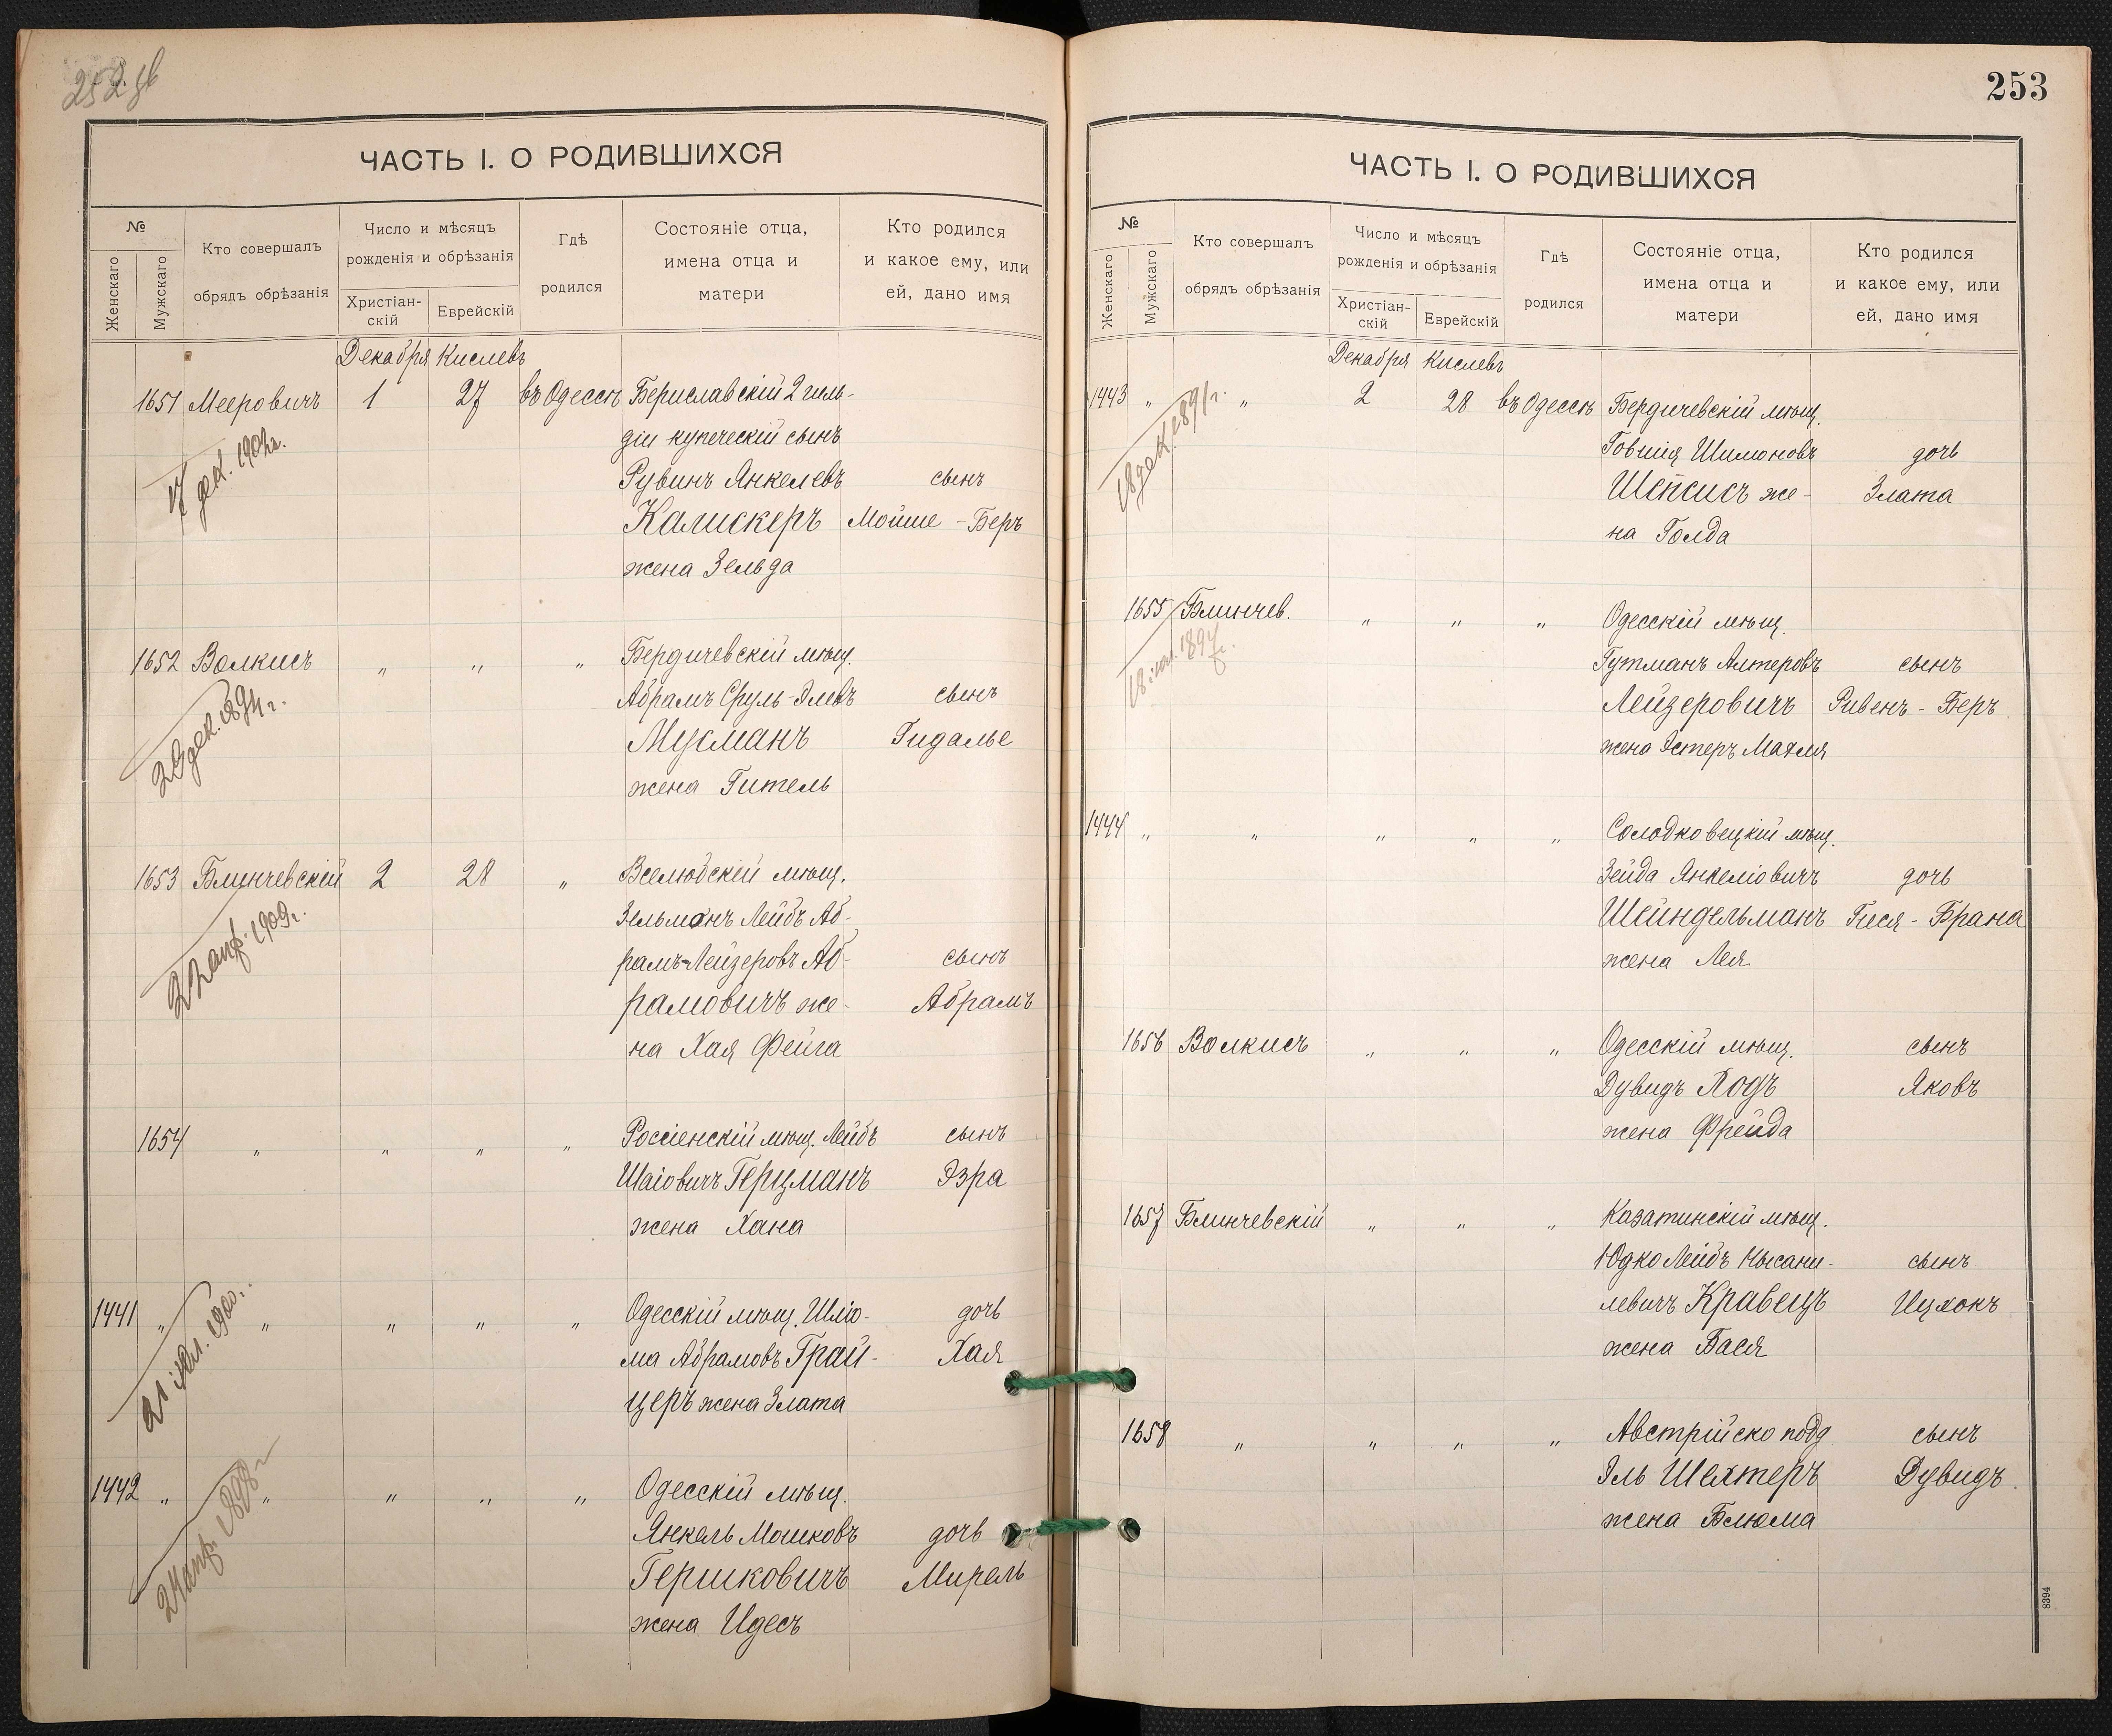 252 об
ЧАСТЬ I. О РОДИВШИХСЯ
№
Женскаго
Мужскаго
Кто совершалъ
обрядъ обрѣзанія
Число и мѣсяцъ
рожденія и обрѣзанія
Христіан-
скій
Еврейскій
Гдѣ
родился
Состояніе отца,
имена отца и
матери
Кто родился
и какое ему, или
ей, дано имя
Декабря Кислевъ
1651 Мееровичъ 1 27 въ Одессѣ Бериславскій 2 гиль-
діи купеческій сынъ
17 дек. 1902г.
Рувинъ Янкелевъ сынъ
Калискеръ Мойше-Беръ
жена Зельда
1652 Волкисъ " " " Бердичевскій мѣщ.
Абрамъ Сруль-Элевъ сынъ
Мусманъ Гидалье
жена Гитель
1653 Блинчевскій 2 28 " Вселюбскій мѣщ.
Зельманъ Лейбъ Аб-
22 апр. 1909г.
рамъ-Лейзеровъ Аб- сынъ
рамовичъ же- Абрамъ
на Хая Фейга
1654 " " " " Россіенскій мѣщ. Лейбъ сынъ
Шаіовичъ Герцманъ Эзра
жена Хана
1441 " " " " " Одесскій мѣщ. Шліо- дочь
ма Абрамовъ Грай- Хая
церъ жена Злата
1442 " " " " " Одесскій мѣщ.
24 апр. 1898г
Янкель Мошковъ дочь
Гершковичъ Мирель
жена Идесъ
253
ЧАСТЬ I. О РОДИВШИХСЯ
№
Женскаго
Мужскаго
Кто совершалъ
обрядъ обрѣзанія
Число и мѣсяцъ
рожденія и обрѣзанія
Христіан-
скій
Еврейскій
Гдѣ
родился
Состояніе отца,
имена отца и
матери
Кто родился
и какое ему, или
ей, дано имя
Декабря Кислевъ
1443 " " 2 28 въ Одессѣ Бердичевскій мѣщ.
Товшія Шимоновъ дочь
Шепсисъ же- Злата
на Голда
1655 Блинчев. " " " Одесскій мѣщ.
Гутманъ Алтеровъ сынъ
Лейзеровичъ Ривенъ-Беръ
жена Эстеръ Махля
1444 " " " " " Солодковецкій мѣщ.
Зейда Янкеліовичъ дочь
Шейндельманъ Гися-Брана
жена Лея
1656 Волкисъ " " " Одесскій мѣщ. сынъ
Дувидъ Ходъ Яковъ
жена Фрейда
1657 Блинчевскій " " " Казатинскій мѣщ.
Юдко Лейбъ Нысани- сынъ
левичъ Кравецъ Ицхокъ
жена Бася
1658 " " " " Австрійско подд сынъ
Эль Шехтеръ Дувидъ
жена Блюма
8394